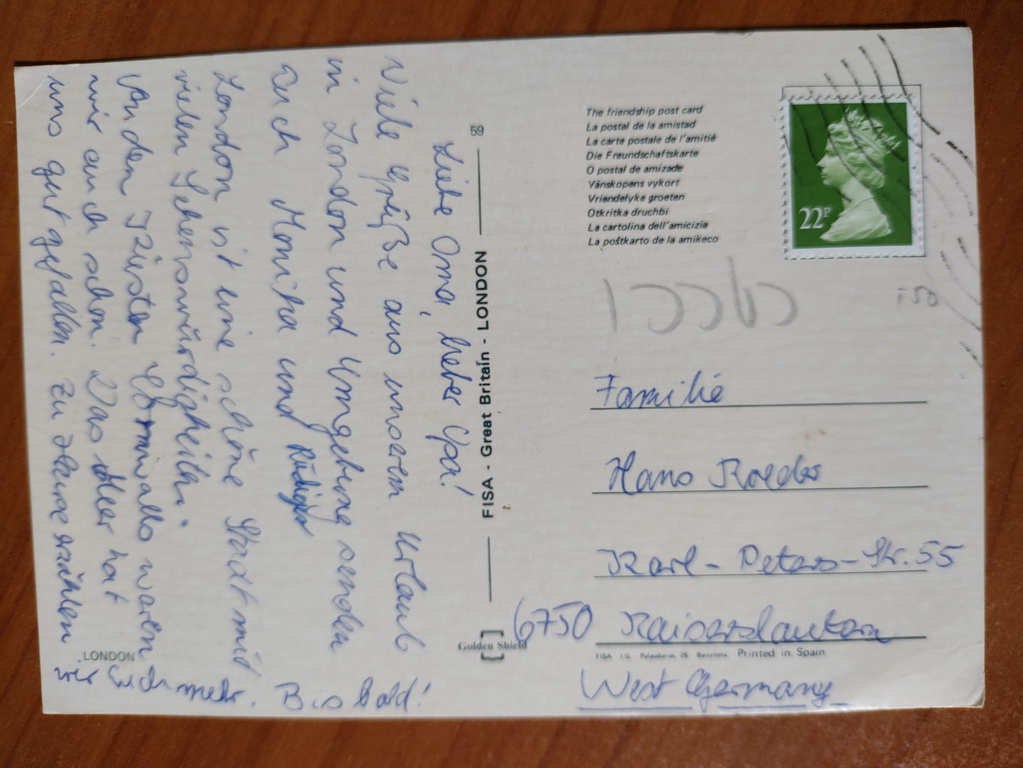 Liebe Oma, lieber Opa!
Viele Grüße aus unserem Urlaub
in London und Umgebung senden
Euch Monika und Rüdiger
London ist eine schöne Stadt mit
vielen Sehenswürdigkeiten.
An den Küsten Cornwalls waren
wir auch schon. Das alles hat
uns gut gefallen. Zu Hause erzählen
wir Euch mehr. Bis bald!
LONDON
59
FISA - Great Britain - LONDON
Golden Shield
The friendship post card
La postal de la amistad
La carte postale de l'amitié
Die Freundschaftskarte
O postal de amizade
Vänskapens vykort
Vriendelyke groeten
Otkritka druchbi
La cartolina dell'amicizia
La poŝtkarto de la amikeco
22P
150
Familie
Hans Roeder
Karl-Peters-Str. 55
6750 Kaiserslautern
FISA I.G. Palaudarias, 26 Barcelona Printed in Spain
West Germany